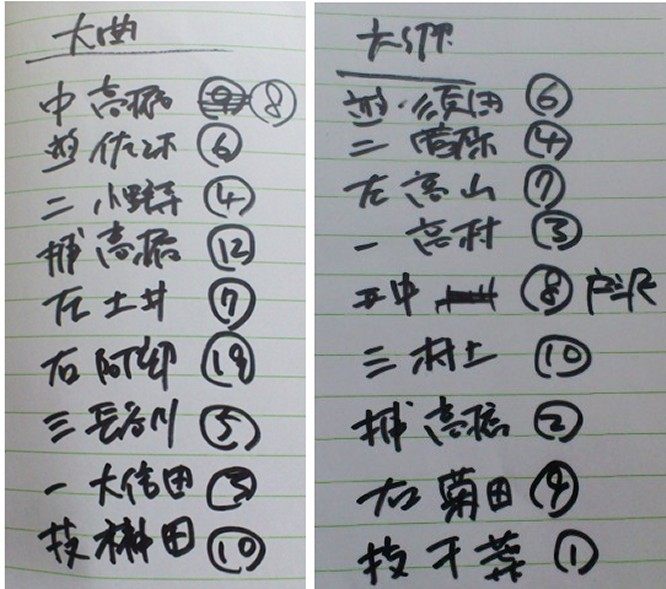 大曲
中 高橋 ⑧
遊 佐々木 ⑥
二 小野寺 ④
捕 高橋 ⑫
左 土井 ⑦
右 阿部 ⑲
三 長谷川 ⑤
一 大信田 ③
投 榊田 ⑩
遊・須田 ⑥
二 ④
左 高山 ⑦
一 高村 ③
中 ⑧ 戸沢
三 村上 ⑩
捕 高橋 ②
右 菊田 ⑨
投 千葉 ①